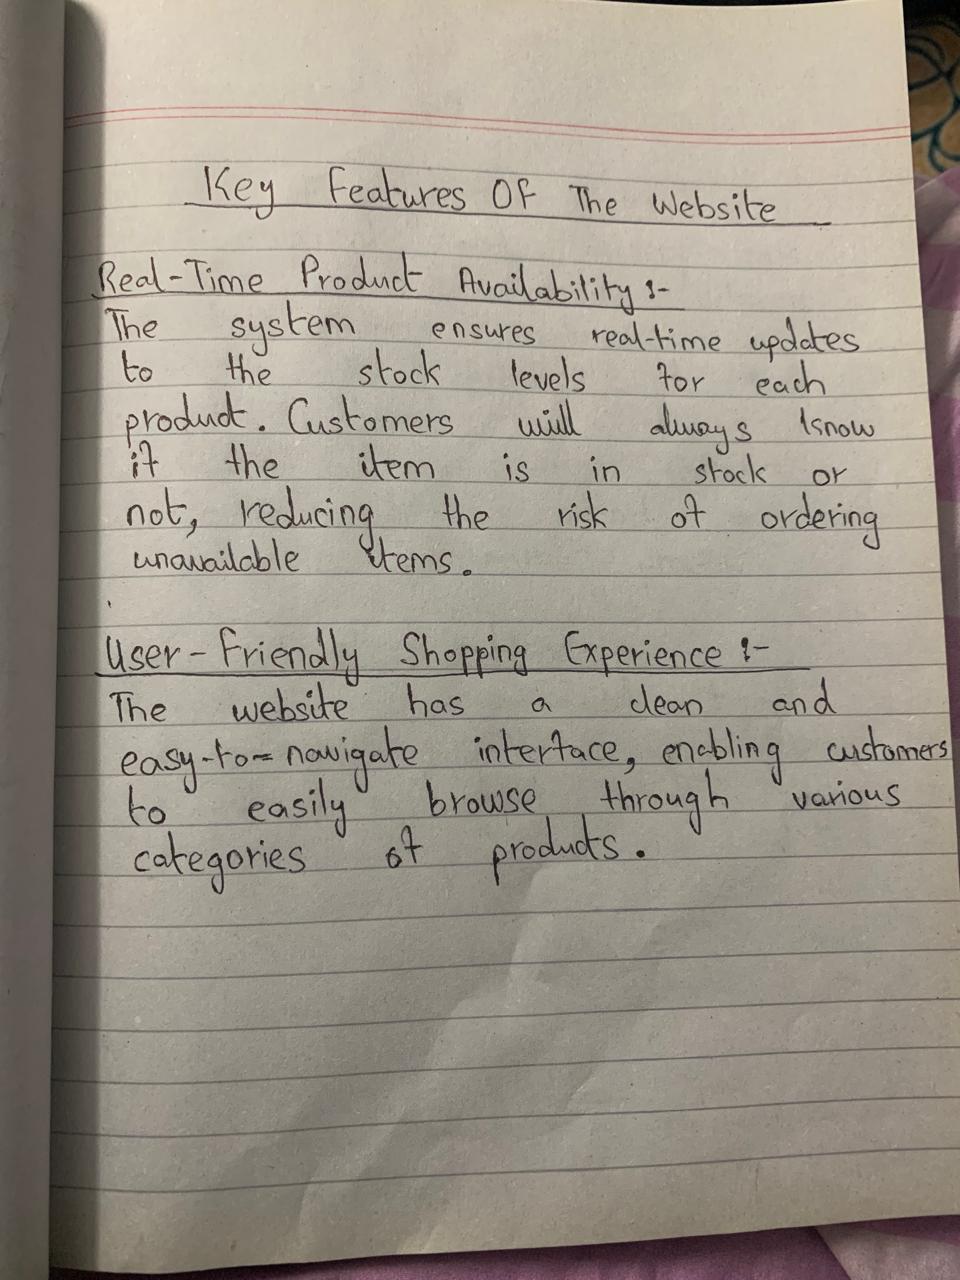 Key Features Of The Website
Real-Time Product Availability :-
The system ensures real-time updates
to the stock levels for each
product. Customers will always know
if the item is in stock or
not, reducing the risk of ordering
unavailable items.
User-Friendly Shopping Experience :-
The website has a clean and
easy-to-navigate interface, enabling customers
to easily browse through various
categories of products.